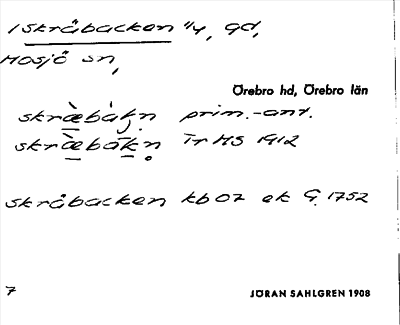 1 Skråbacken 1/4, gd,
Mosjö sn,
Örebro hd, Örebro län
skræ̀bàk̥n prim.-ant.
skræ̀bakn̥ Tr HS 1912
Skråbacken kb 07 ek G. 1752
7
JÖRAN SAHLGREN 1908